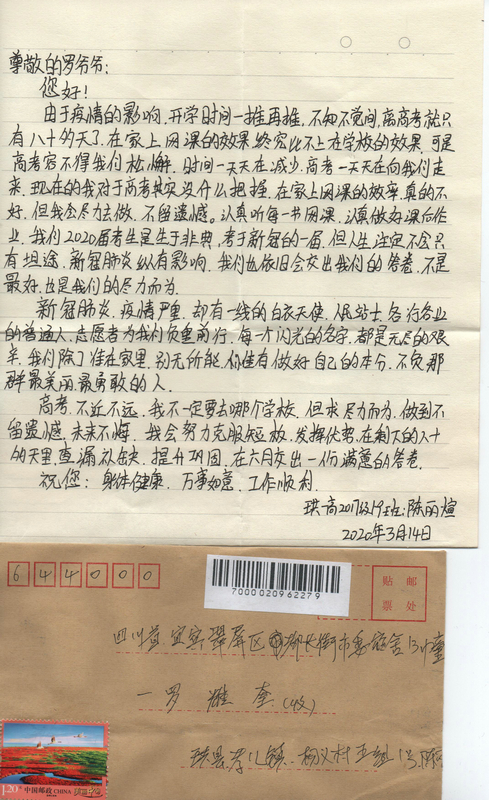 尊敬的罗爷爷：
您好！
由于疫情的影响，开学时间一推再推，不知不觉间，离高考就只
有八十多天了。在家上网课的效果终究比不上在学校的效果，可是
高考容不得我们松懈。时间一天天在减少，高考一天天在向我们走
来，现在的我对于高考其实没什么把握，在家上网课的效率真的不
好，但我会尽力去做，不留遗憾。认真听每一节网课，认真做好课后作
业，我们2020届考生是生于非典，考于新冠的一届，但人生注定不会只
有坦途，新冠肺炎纵有影响，我们也依旧会交出我们的答卷，不是
最好，也是我们的尽力而为。
新冠肺炎，疫情严重，却有一线的白衣天使，人民战士，各行各业
的普通人，志愿者为我们负重前行，每一个闪光的名字，都是无尽的艰
辛，我们除了待在家里，别无所能，们唯有做好自己的本分，不负那
群最美丽最勇敢的人。
高考，不近不远，我不一定要去哪个学校，但求尽力而为，做到不
留遗憾，未来不悔，我会努力克服短板，发挥优势，在剩下的八十
的天里，查漏补缺，提升巩固，在六月交出一份满意的答卷。
祝您：身体健康，万事如意，工作顺利
珙高2017级19班：陈丽煊
2020年3月14日
644000
7000020962279
贴 邮
票 处
四川省宜宾翠屏区 市委宿舍
罗 奎（收）
珙县孝儿镇 村五组1号 陈
1.20元 中国邮政 CHINA